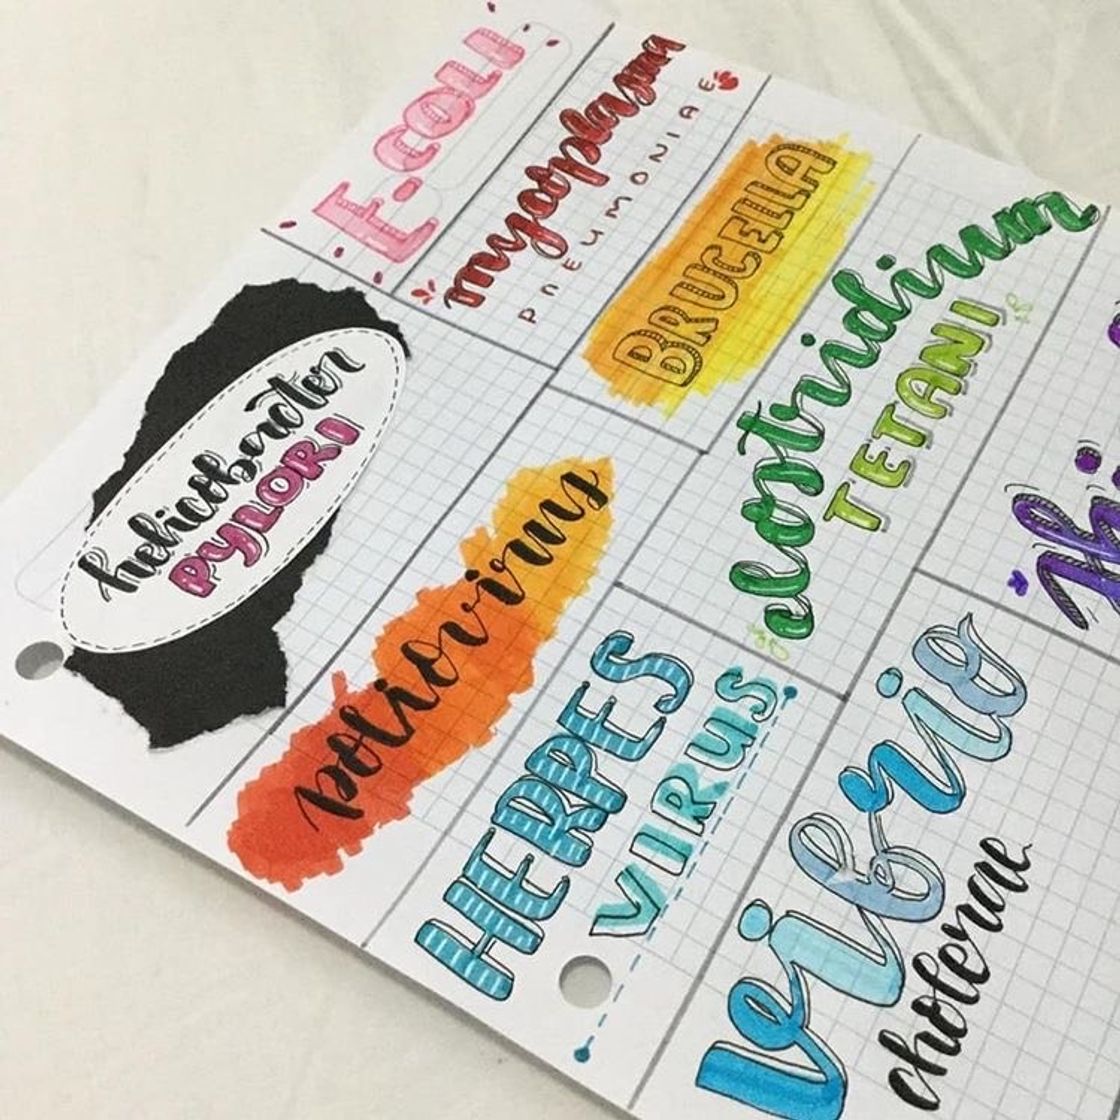 E-COLI
mycoplasma
PnEUMONIAE
BRUCELLA
clostridium
TETANI
helicobacter
PYLORI
poliovirus
HERPES
VIRUS
vibrio
cholerae